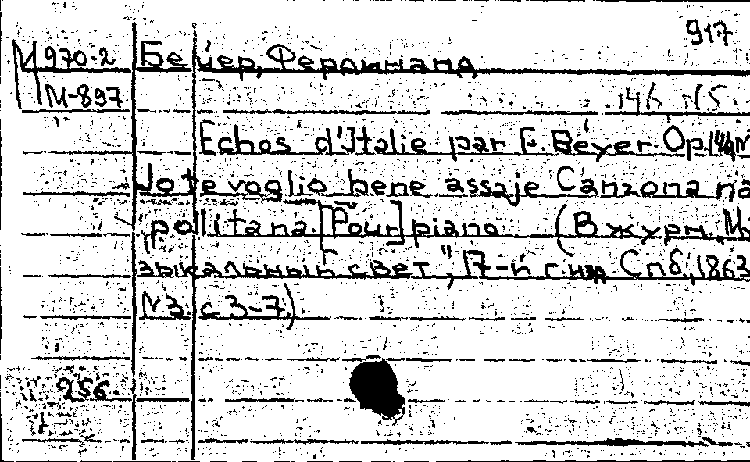 917
М970-2 Бейер, Фердинанд
М-897
Echos d'Italie par F. Beyer Op.144 N
Jo te voglio bene assaje Canzona na
politana. [Pour] piano (В журн. „Му
зыкальный свет", 17-й г. изд. Спб., 1863
N3. с 3-7).
256.